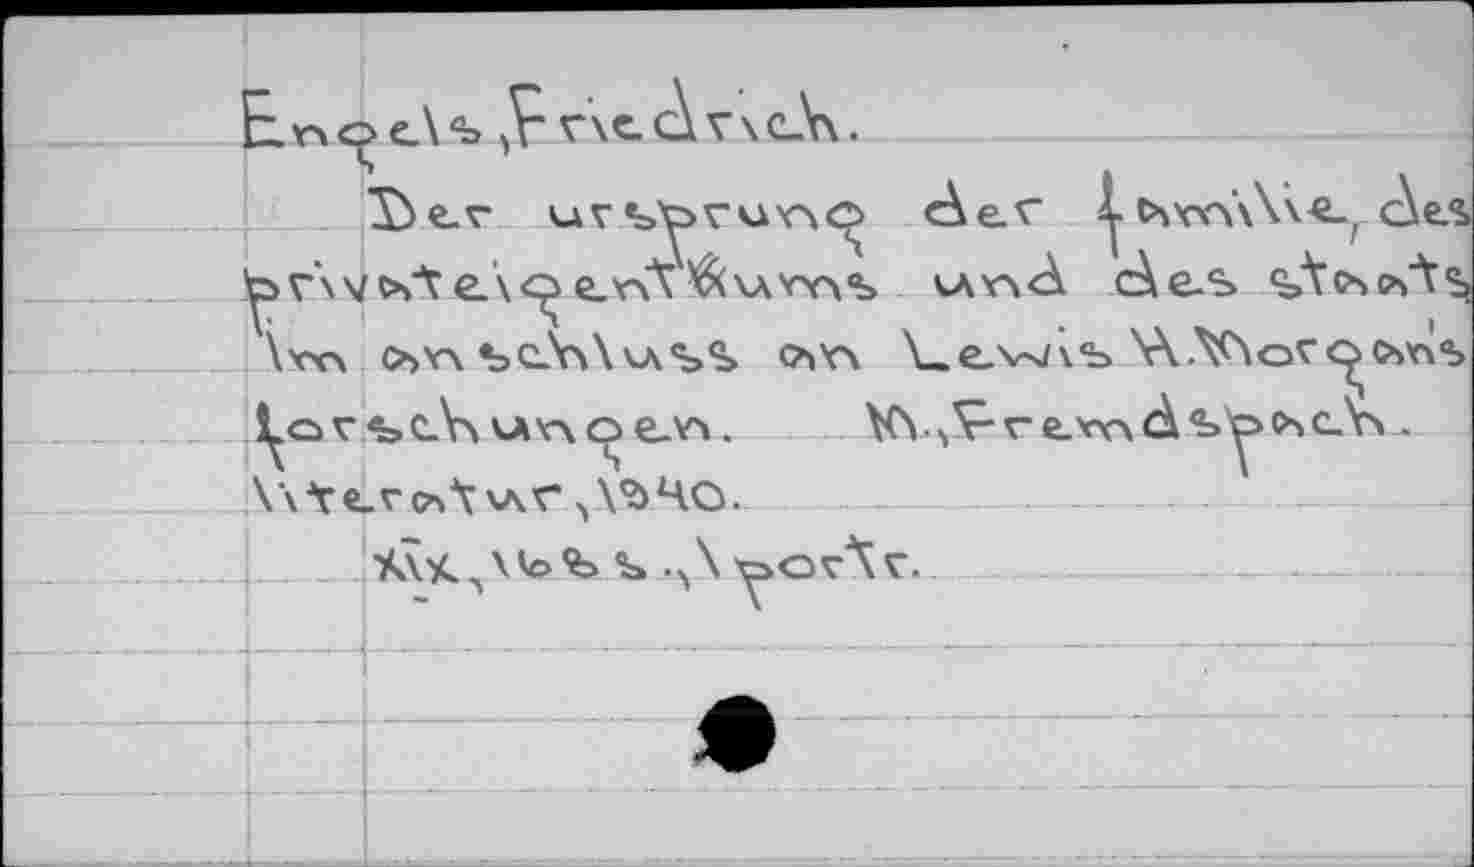 Engels, Friedrich.
Der ursprung der familie, des
privateigentums und des staats,
im anschluss an Lewis H. Morgan's
forschungen. M., Fremdsprach.
literatur, 1940.
XIX, 163 s., 1 portr.